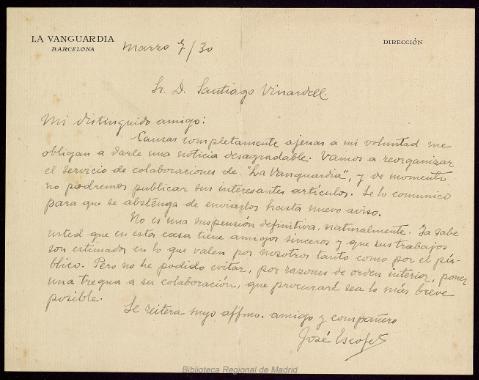 LA VANGUARDIA
BARCELONA
DIRECCIÓN
Marzo 7/30
Sr. D. Santiago Vinardell
Mi distinguido amigo:
Causas completamente ajenas a mi voluntad me
obligan a darle una noticia desagradable. Vamos a reorganizar
el servicio de colaboraciones de "La Vanguardia", y de momento
no podremos publicar sus interesantes artículos. Se lo comunico
para que se abstenga de enviarlos hasta nuevo aviso.
No es una suspensión definitiva, naturalmente. Ya sabe
usted que en esta casa tiene amigos sinceros y que sus trabajos
son estimados en lo que valen por nosotros tanto como por el pú-
blico. Pero no he podido evitar, por razones de orden interior, poner
una tregua a su colaboración, que procuraré sea lo más breve
posible.
Se reitera suyo affmo. amigo y compañero
José Escofet
Biblioteca Regional de Madrid